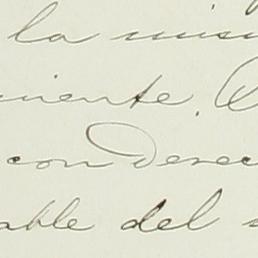 la mism
niente.
con derec
able del